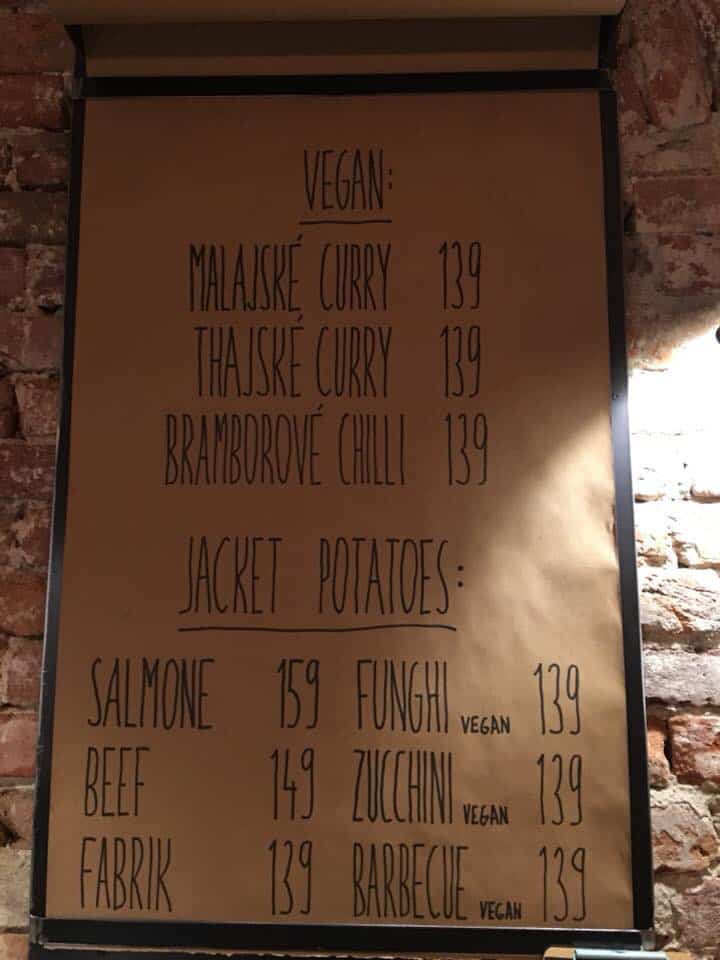 VEGAN:
MALAJSKÉ CURRY 139
THAJSKÉ CURRY 139
BRAMBOROVÉ CHILLI 139
JACKET POTATOES:
SALMONE 159 FUNGHI VEGAN 139
BEEF 149 ZUCCHINI VEGAN 139
FABRIK 139 BARBECUE VEGAN 139